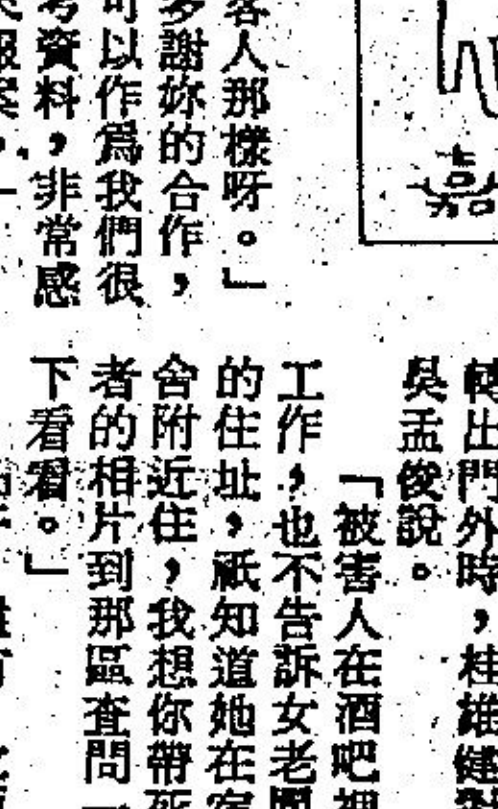 客人那樣呀。」
多謝妳的合作，
可以作爲我們很
考資料，非常感
報案，
出門外時，桂雄健
吳孟俊說。
「被害人在酒吧裡
工作，也不告訴女老闆
的住址，祇知道她在宿
舍附近住，我想你帶死
者的相片到那區查問一
下看看。」